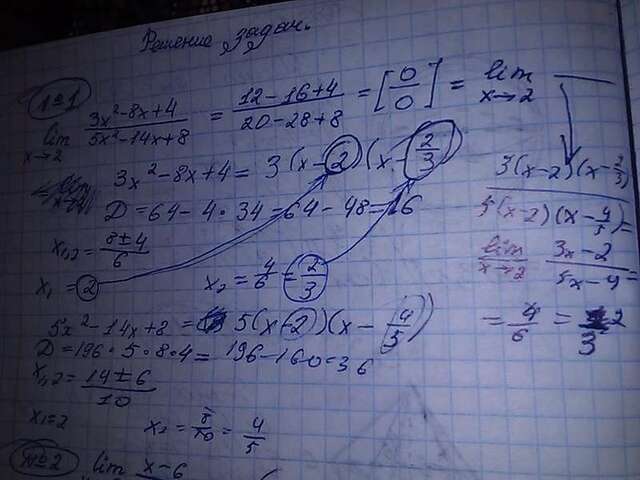 Решение задач.
№1
lim x→2 (3x²-8x+4)/(5x²-14x+8) = (12-16+4)/(20-28+8) = [0/0] = lim x→2
3x²-8x+4 = 3(x-2)(x-2/3)
D=64-4·34=64-48=16
x₁,₂=(8±4)/6
x₁=2 x₂=4/6=2/3
5x²-14x+8= 5(x-2))(x-4/5)
D=196·5·8·4= 196-160=36
x₁,₂=(14±6)/10
x₁=2 x₂=8/10=4/5
3(x-2)(x-2/3)
5(x-2)(x-4/5)=
lim x→2 (3x-2)/(5x-4)=
=4/6=2/3
№2 lim x-6